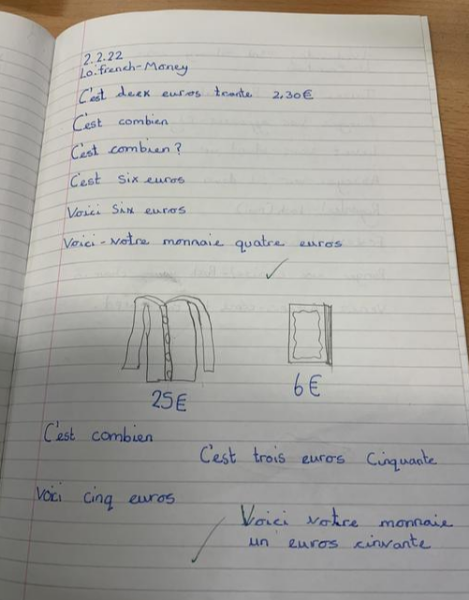 2.2.22
Lo. french - Money
C'est deux euros trente 2,30€
C'est combien
C'est combien?
C'est six euros
Voici Six euros
Voici - votre monnaie quatre euros
25€
6€
C'est combien
C'est trois euros Cinquante
Voici cinq euros
Voici votre monnaie
un euros cinvante